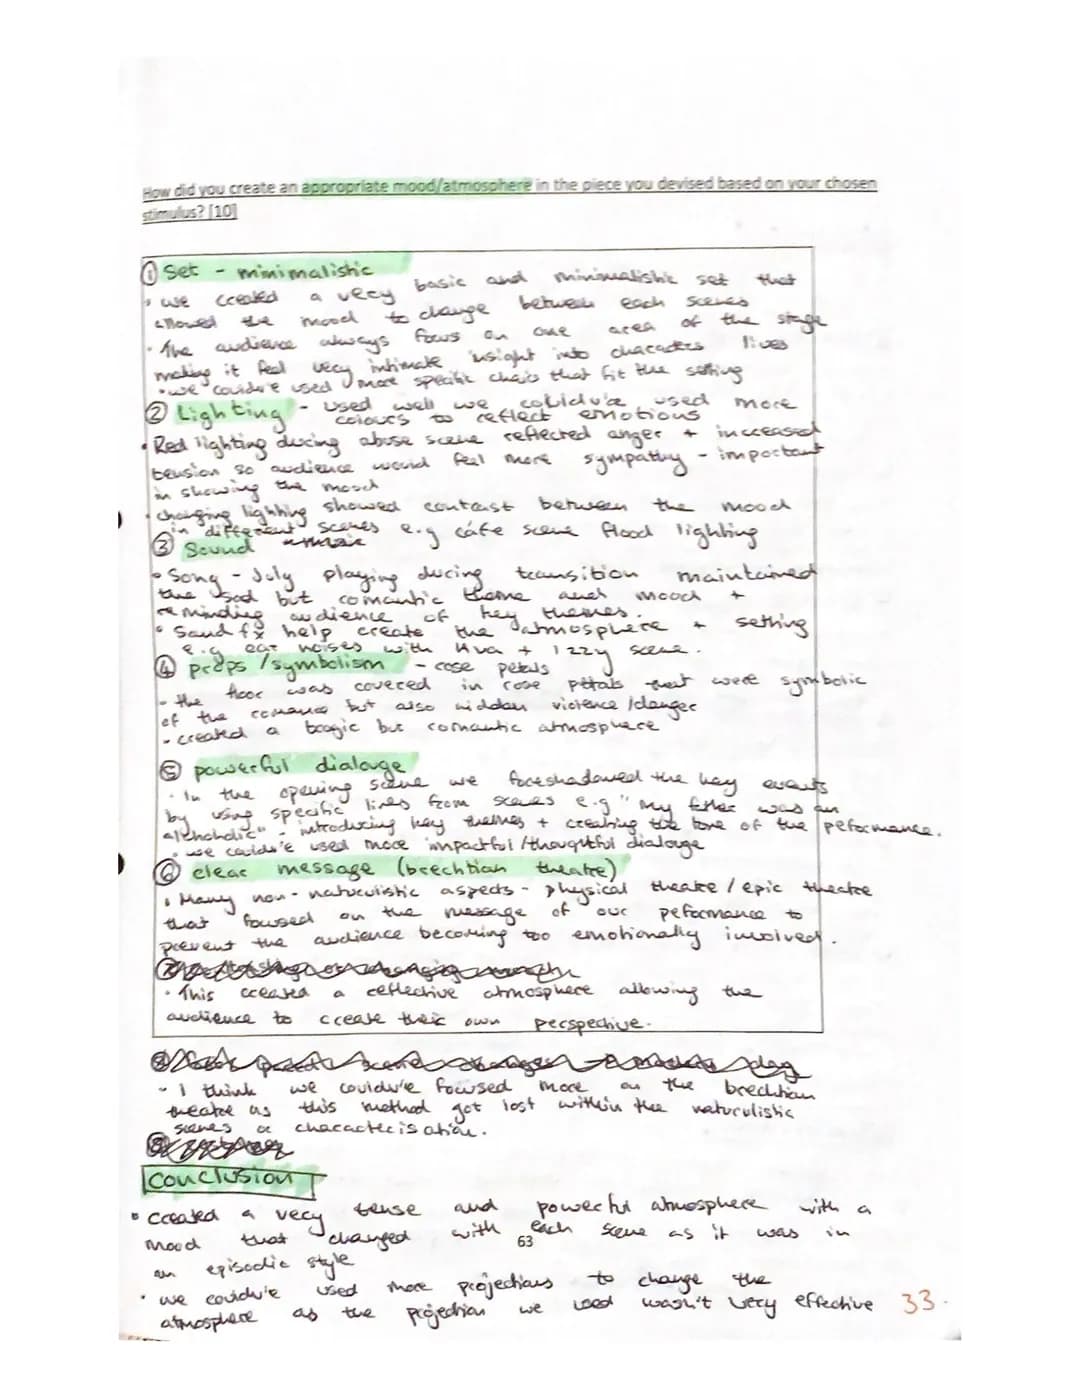 How did you create an appropriate mood/atmosphere in the piece you devised based on your chosen
stimulus? [10]
① Set - minimalistic
• we created a very basic and minimalistic set that
allowed the mood to change between each scenes
• The audience always focus on one area of the stage
making it feel very intimate insight into characters lives
• we could've used more specific chairs that fit the setting
② Lighting - used well we could've used more
colours to reflect emotions
• Red lighting during abuse scene reflected anger + increased
tension so audience would feel more sympathy - important
in showing the mood
• changing lighting showed contrast between the mood
in different scenes e.g cafe scene flood lighting
③ Sound
• Song - July playing during transition maintained
the sad but romantic theme and mood +
reminding audience of key themes.
• Sound fx help create the atmosphere + setting
e.g car noises with Ava + Izzy scene.
④ props / symbolism - rose petals
- the floor was covered in rose petals that were symbolic
of the romance but also hidden violence / danger
- created a tragic but romantic atmosphere
⑤ powerful dialouge
• In the opening scene we foreshadowed the key events
by using specific lines from scenes e.g "my father was an
alchoholic" - introducing key themes + creating the tone of the peformance.
• we could've used more impactful / thougutful dialouge
⑥ clear message (brechtian theatre)
• Many non-naturulistic aspects - physical theatre / epic theatre
that focused on the message of our peformance to
prevent the audience becoming too emotionally involved.
• This created a reflective atmosphere allowing the
audience to create their own perspective.
- I think we could've focused more on the brechtian
theatre as this method got lost within the naturulistic
scenes or characterisation.
Conclusion
• created a very tense and powerful atmosphere with a
mood that changed with each scene as it was in
63
an episodic style
• we could've used more projections to change the
atmosphere as the projection we used wasn't very effective 33.